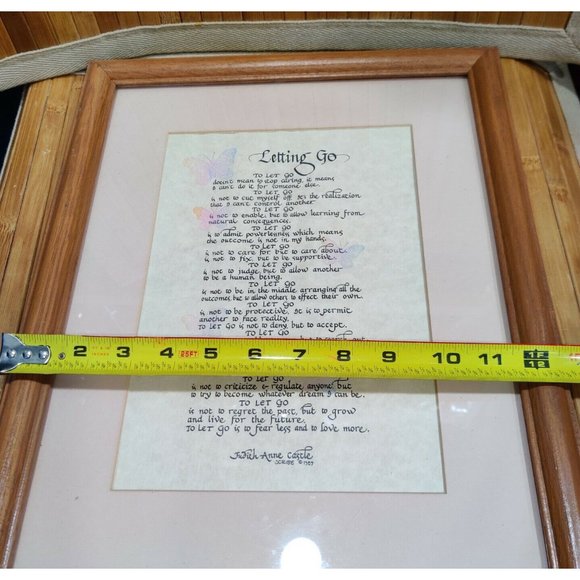 Letting Go
TO LET GO
doesn't mean to stop caring, it means
I can't do it for someone else.
TO LET GO
is not to cut myself off. It's the realization
that I can't control another
TO LET GO
is not to enable, but to allow learning from
natural consequences.
TO LET GO
is to admit powerlessness which means
the outcome is not in my hands.
TO LET GO
is not to care for but to care about
is not to fix, but to be supportive.
TO LET GO
is not to judge, but to allow another
to be a human being.
TO LET GO
is not to be in the middle arranging all the
outcomes but to allow others to effect their own.
TO LET GO
is not to be protective. It is to permit
another to face reality.
TO LET GO is not to deny, but to accept.
TO LET GO
2 3 4 5 6 7 8 9 10 11 1F 12
INCHES
25FT
TO LET GO
is not to criticize & regulate anyone but
to try to become whatever dream I can be.
TO LET GO
is not to regret the past, but to grow
and live for the future.
TO LET GO is to fear less and to love more.
Judith Anne Castle
SCRIBE © 1987